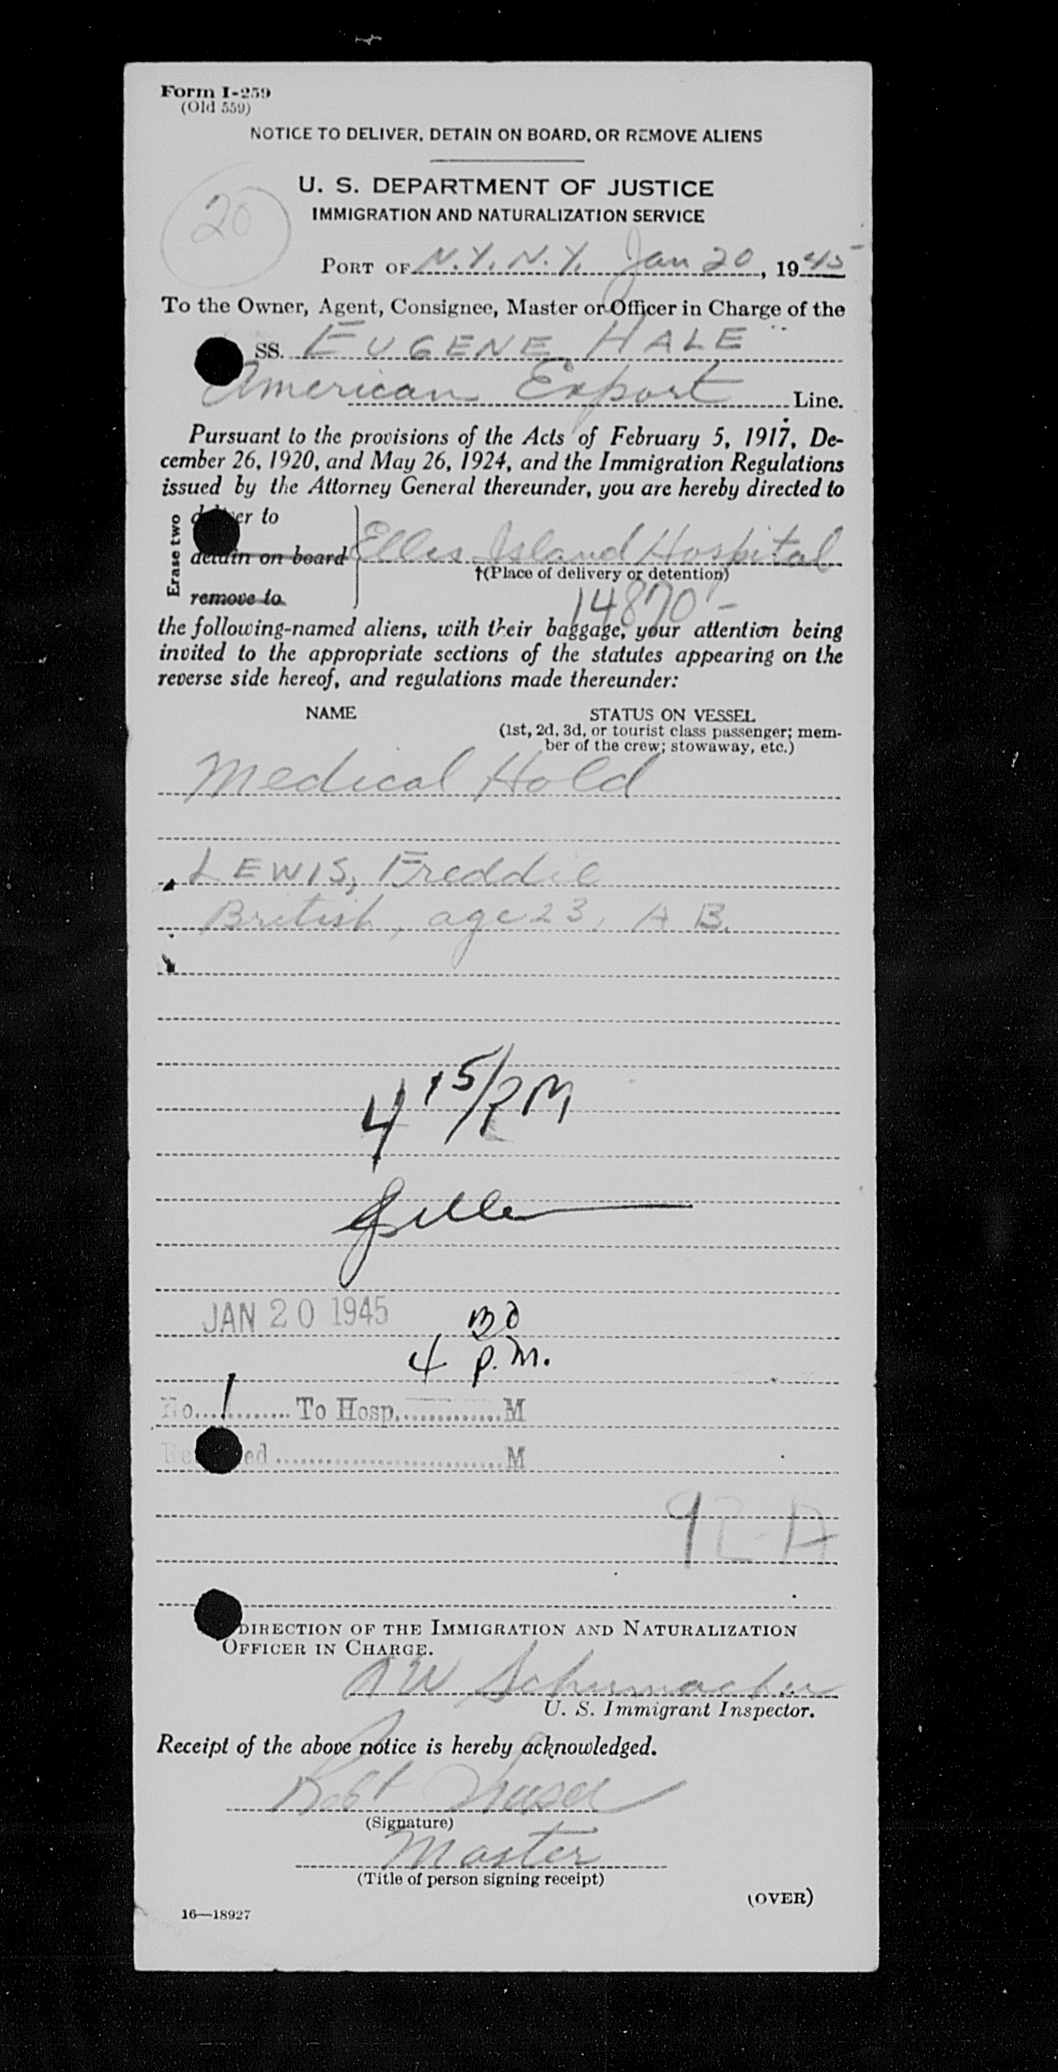 Form I-259
(Old 559)
NOTICE TO DELIVER, DETAIN ON BOARD, OR REMOVE ALIENS
U. S. DEPARTMENT OF JUSTICE
IMMIGRATION AND NATURALIZATION SERVICE
20
PORT OF N.Y. N.Y. Jan 20, 1945
To the Owner, Agent, Consignee, Master or Officer in Charge of the
SS. EUGENE HALE
American Export Line.
Pursuant to the provisions of the Acts of February 5, 1917, De-
cember 26, 1920, and May 26, 1924, and the Immigration Regulations
issued by the Attorney General thereunder, you are hereby directed to
Erase two
deliver to
detain on board Ellis Island Hospital
†(Place of delivery or detention)
remove to 14870-
the following-named aliens, with their baggage, your attention being
invited to the appropriate sections of the statutes appearing on the
reverse side hereof, and regulations made thereunder:
NAME STATUS ON VESSEL
(1st, 2d, 3d, or tourist class passenger; mem-
ber of the crew; stowaway, etc.)
Medical Hold
LEWIS, Freddie
British, age 23, A B.
4 15/PM
JAN 20 1945
4 P.M.
No. 1 To Hosp. M
ed M
92-A
DIRECTION OF THE IMMIGRATION AND NATURALIZATION
OFFICER IN CHARGE.
Schumacher
U. S. Immigrant Inspector.
Receipt of the above notice is hereby acknowledged.
Robt
(Signature)
Master
(Title of person signing receipt)
(OVER)
16—18927